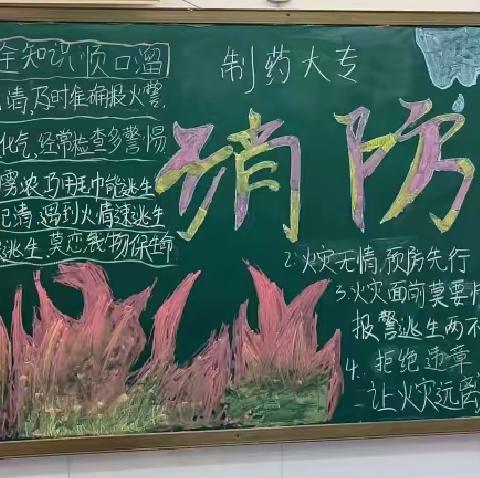 全知识顺口溜
情,及时准确报火警.
化气,经常检查多警惕
雾浓,巧用毛巾能逃生
记清,遇到火情速逃生
逃生,莫恋财物保生命
制药大专
消防
2.火灾无情,预防先行
3.火灾面前莫要
报警逃生两不
4.拒绝违章
让火灾远离